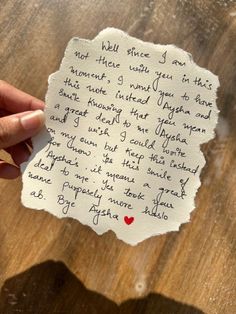 Well since I am
not there with you in this
moment, I want you to have
this note instead Aysha and
smile knowing that you mean
a great deal to me Aysha
and I wish I could write
on my own but keep this instead
for now. Yes this smile of
Aysha's. it means a great
deal to me. Yes took your
name purposely more
ab. Bye Aysha